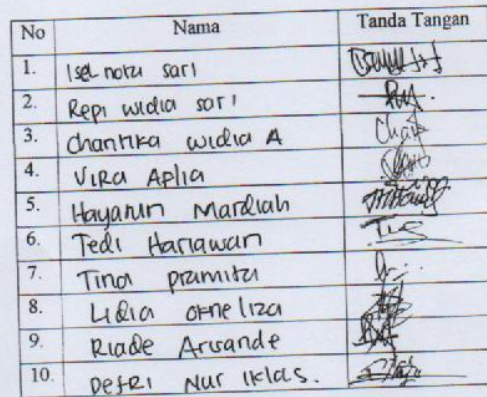 No Nama Tanda Tangan
1. Isel nora sari
2. Repi widia sari
3. Chantika widia A
4. Vira Aplia
5. Hayatun Mardiah
6. Tedi Hariawan
7. Tina pramita
8. Lidia orneliza
9. Riade Arsande
10. Defri Nur iklas.